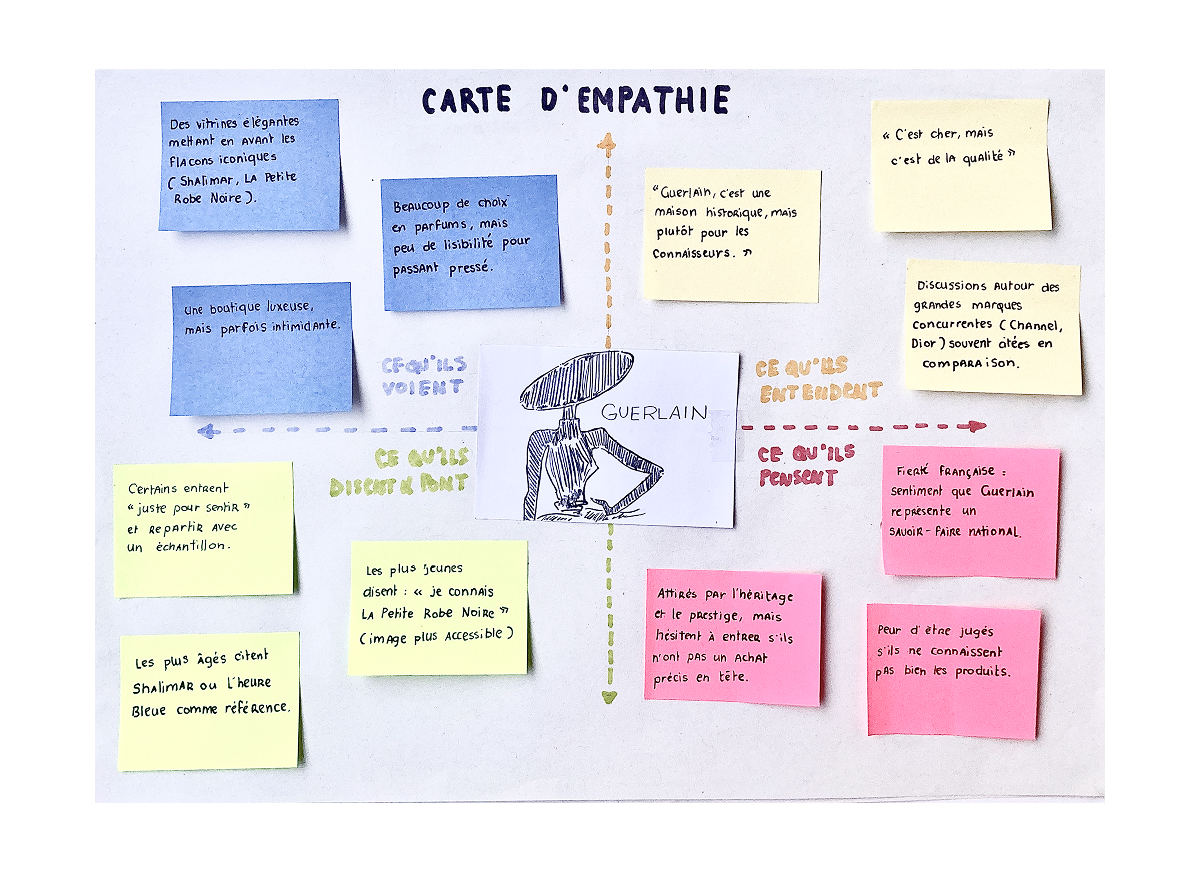 CARTE D'EMPATHIE
Des vitrines élégantes
mettant en avant les
flacons iconiques
(Shalimar, La Petite
Robe Noire).
Beaucoup de choix
en parfums, mais
peu de lisibilité pour
passant pressé.
Une boutique luxeuse,
mais parfois intimidante.
CE QU'ILS
VOIENT
"Guerlain, c'est une
maison historique, mais
plutôt pour les
connaisseurs. "
« C'est cher, mais
c'est de la qualité »
Discussions autour des
grandes marques
concurrentes (Channel,
Dior) souvent citées en
comparaison.
CE QU'ILS
ENTENDENT
GUERLAIN
CE QU'ILS
DISENT & FONT
Certains entrent
"juste pour sentir"
et repartir avec
un échantillon.
Les plus jeunes
disent : « je connais
La Petite Robe Noire »
(image plus accessible)
Les plus âgés citent
Shalimar ou L'heure
Bleue comme référence.
CE QU'ILS
PENSENT
Fierté française :
sentiment que Guerlain
représente un
savoir-faire national.
Attirés par l'héritage
et le prestige, mais
hésitent à entrer s'ils
n'ont pas un achat
précis en tête.
Peur d'être jugés
s'ils ne connaissent
pas bien les produits.